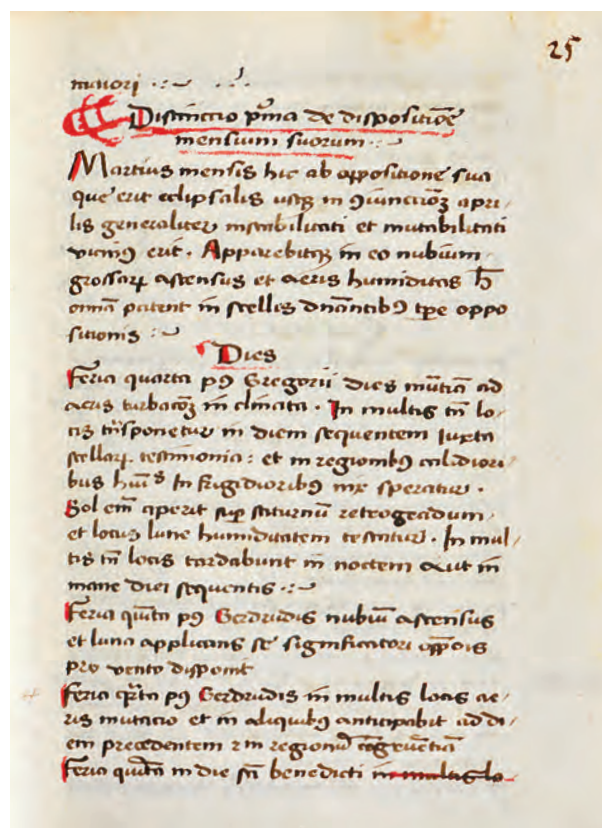 25
maiori
Distinctio p͛ma de dispositio͞e
mensium suorum
Martius mensis hic ab opposition͞e sua
que erit eclipsalis usqꝫ in ꝯiunctio͞ꝫ apri
lis generaliter instabilitati et mutabilitati
vicinꝰ erit . Apparebitqꝫ in eo nubium
grossaꝝ ascensus et aeris humiditas h͞
om͞ia patent in stellis dn͞antibꝰ tp͞e oppo
sitionis
Dies
Feria quarta pꝰ Gregorii dies
aeris turbac͞oꝫ in clinata . In multis tn͞ lo
cis tn͞sponetur in diem sequentem iuxta
stellaꝝ testimonia : et in regionibꝰ calidiori
bus In frigidioribꝰ nix speratur .
Sol em͞ aperit sup saturnu͞ retrogradum
et locus lune humiditatem testatur . In mul
tis tn͞ locis tardabunt in noctem aut in
mane diei sequentis
Feria qui͞ta pꝰ Gerdrudis nubiu͞ ascensus
et luna applicans se significatori opp͞ois
pro vento disponit
Feria q͛rta pꝰ Gerdrudis in multis locis ae
ris mutacio et in aliquibꝰ anticipabit ad di
em precedentem in regionu͞
Feria qui͞ta in die sc͞i benedicti in multis lo